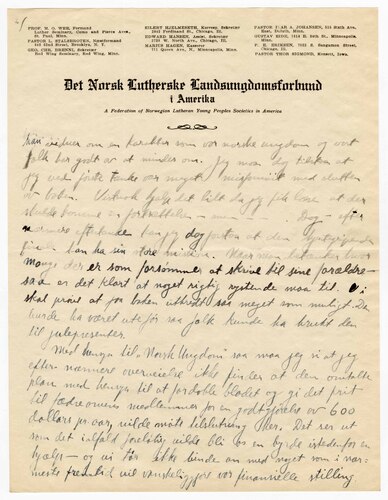 4
PROF. M. O. WEE, Formand
Luther Seminary, Como and Pierce Ave.,
St. Paul, Minn.
PASTOR L. STALSBROTEN, Næstformand
Brooklyn, N. Y.
GEO. CHR. BRENNI, Sekretær
Red Wing Seminary, Red Wing, Minn.
EILERT HJELMSETH, Korresp. Sekretær
Ferdinand St., Chicago, Ill.
HOWARD HANSEN, Assist. Sekretær
North Ave., Chicago, Ill.
MARIUS HAGEN, Kasserer
Queen Ave., N., Minneapolis, Minn.
PASTOR A. JOHANSEN, Ave.
East, Duluth, Minn.
GUSTAV EIDE, St.,
Minneapolis, Minn.
P. B. ERIKSEN, Sangamon Street,
Chicago, Ill.
PASTOR THOR SIGMOND, Kensett, Iowa.
Det Norsk Lutherske Landsungdomsforbund
i Amerika
A Federation of Norwegian Lutheran Young Peoples Societies in America
om en karakter som vor norske ungdom og vort
folk har godt av at mindes om. Jeg maa
jeg ved første tanke var meget misfornøiet med slutten
av boken. det lidt da jeg fik læse at der
skulde komme en fortsættelse – men – Dog – efter
nærmere eftertanke tør jeg dog at den
kan ha sin store mission. Naar man betænker hvor
mange der er som forsømmer at skrive til sine forældre –
saa er det klart at noget rigtig rystende maa til. Vi
skal prøve at faa boken utbredt saa meget som muligt. Den
burde ha været ute før saa folk kunde ha brukt den
til julepresenter.
Med hensyn til "Norsk Ungdom" saa maa jeg si at jeg
efter nærmere overveielse ikke finder at den omtalte
plan med hensyn til at fordoble bladet og gi det frit
til medlemmer for en godtgjørelse av 600
dollars pr. aar, vilde møte tilslutning her. Det ser ut
som det ialfald foreløbig vilde bli os en byrde istedenfor en
hjælp – og vi tør ikke binde an med noget som i nær-
meste fremtid vil vanskeliggjøre vor finansielle stilling